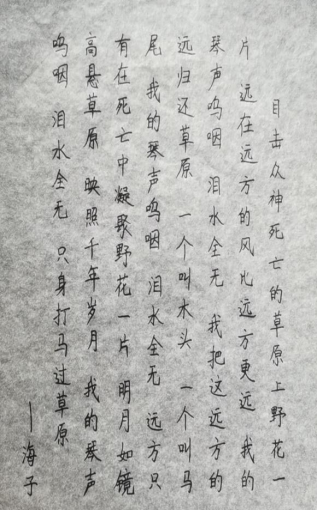 目击众神死亡的草原上野花一
片 远在远方的风比远方更远 我的
琴声呜咽 泪水全无 我把这远方的
远归还草原 一个叫木头 一个叫马
尾 我的琴声呜咽 泪水全无 远方只
有在死亡中凝聚野花一片 明月如镜
高悬草原 映照千年岁月 我的琴声
呜咽 泪水全无 只身打马过草原
——海子